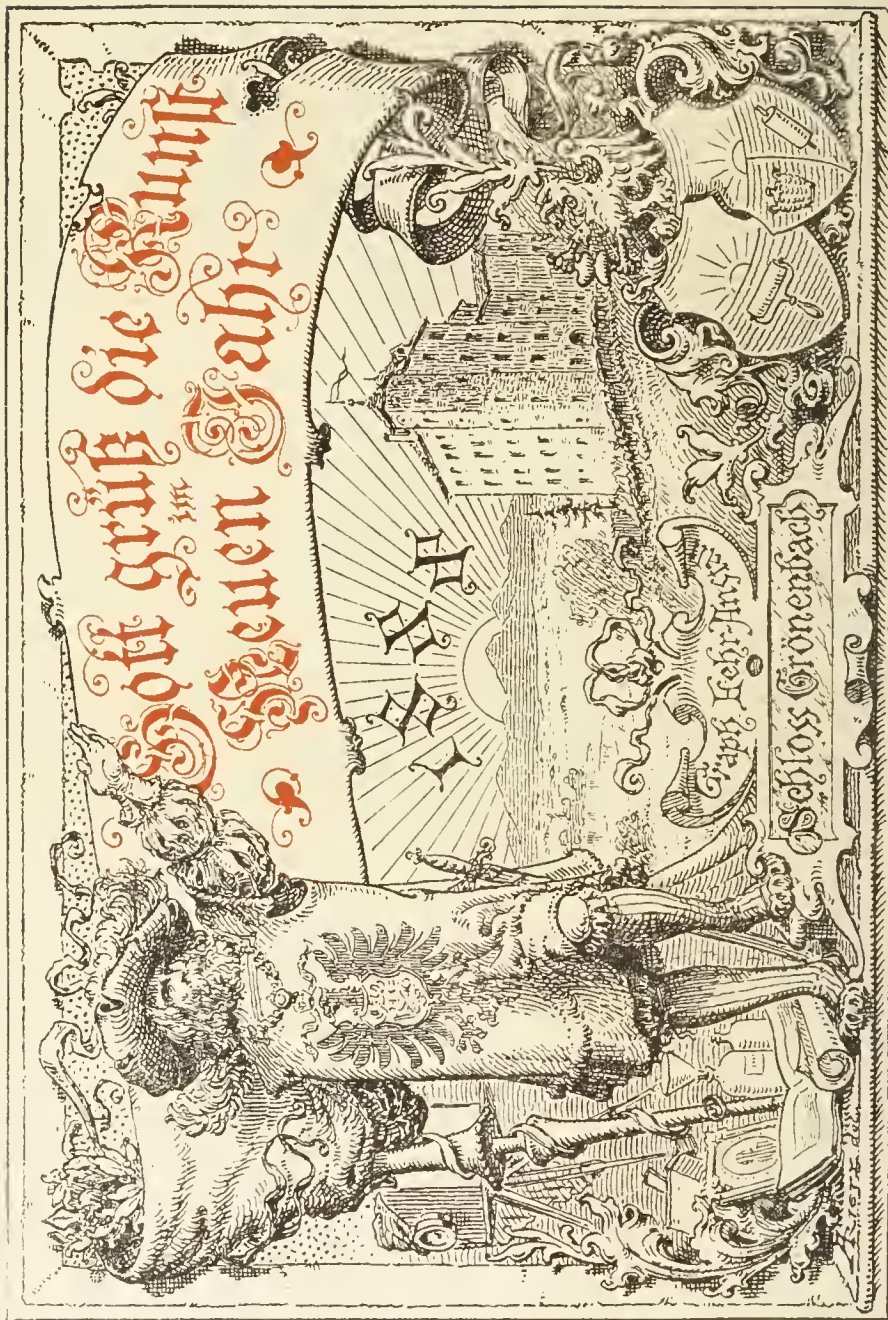 Gott grüß die Kunst
im
Neuen Jahr
1888
Graph. Lehr-Institut
Schloss Gronenbach